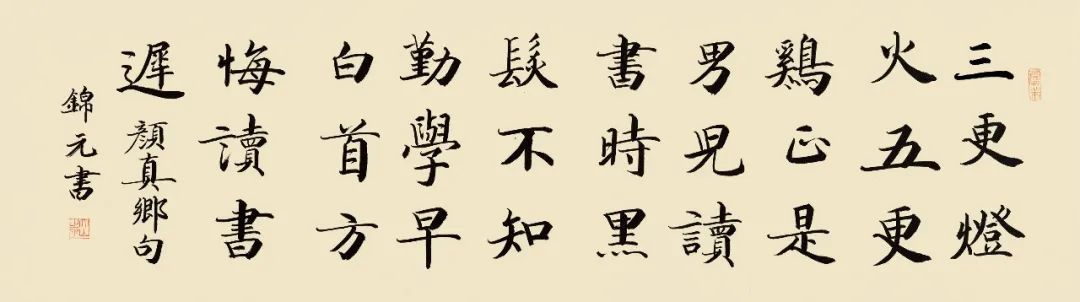 三更燈
火五更
鷄正是
男児讀
書時黑
髮不知
勤學早
白首方
悔讀書
遲
顔真鄉句
錦元書